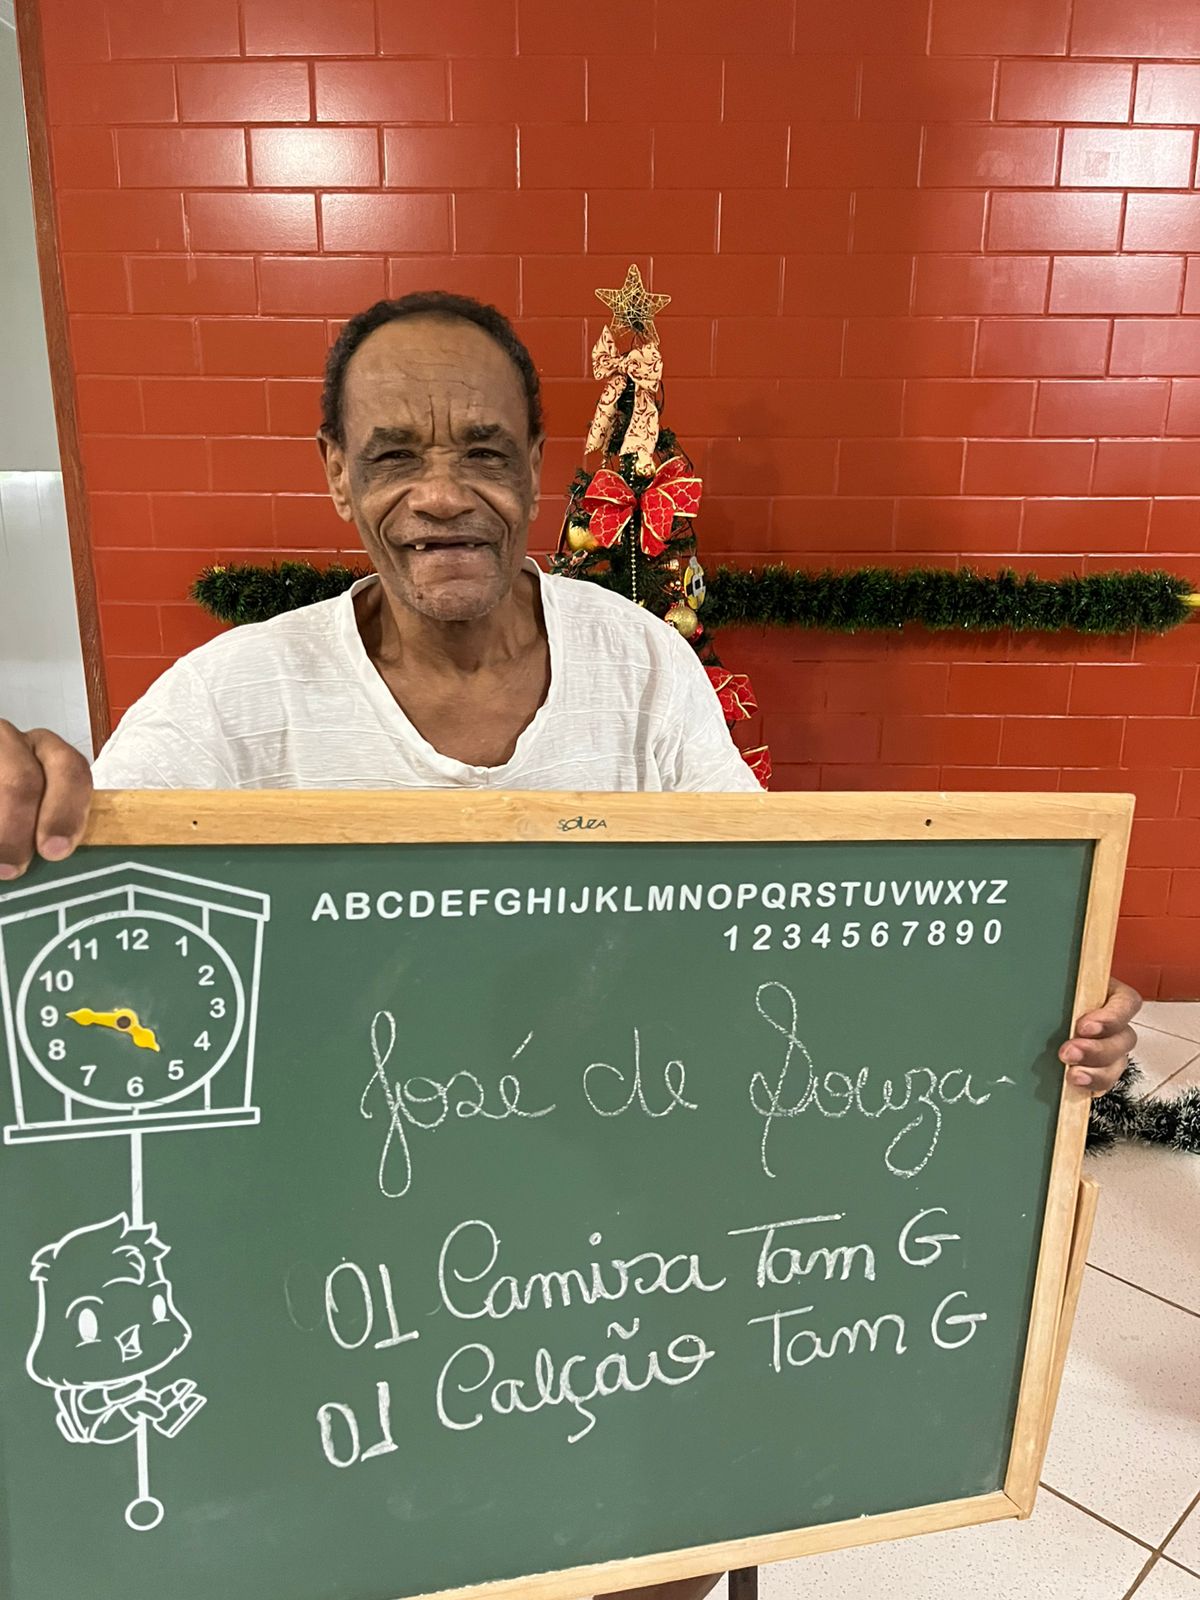 SOUZA
ABCDEFGHIJKLMNOPQRSTUVWXYZ
1234567890
12
11 1
10 2
9 3
8 4
7 5
6
José de Souza
01 Camisa Tam G
01 Calção Tam G